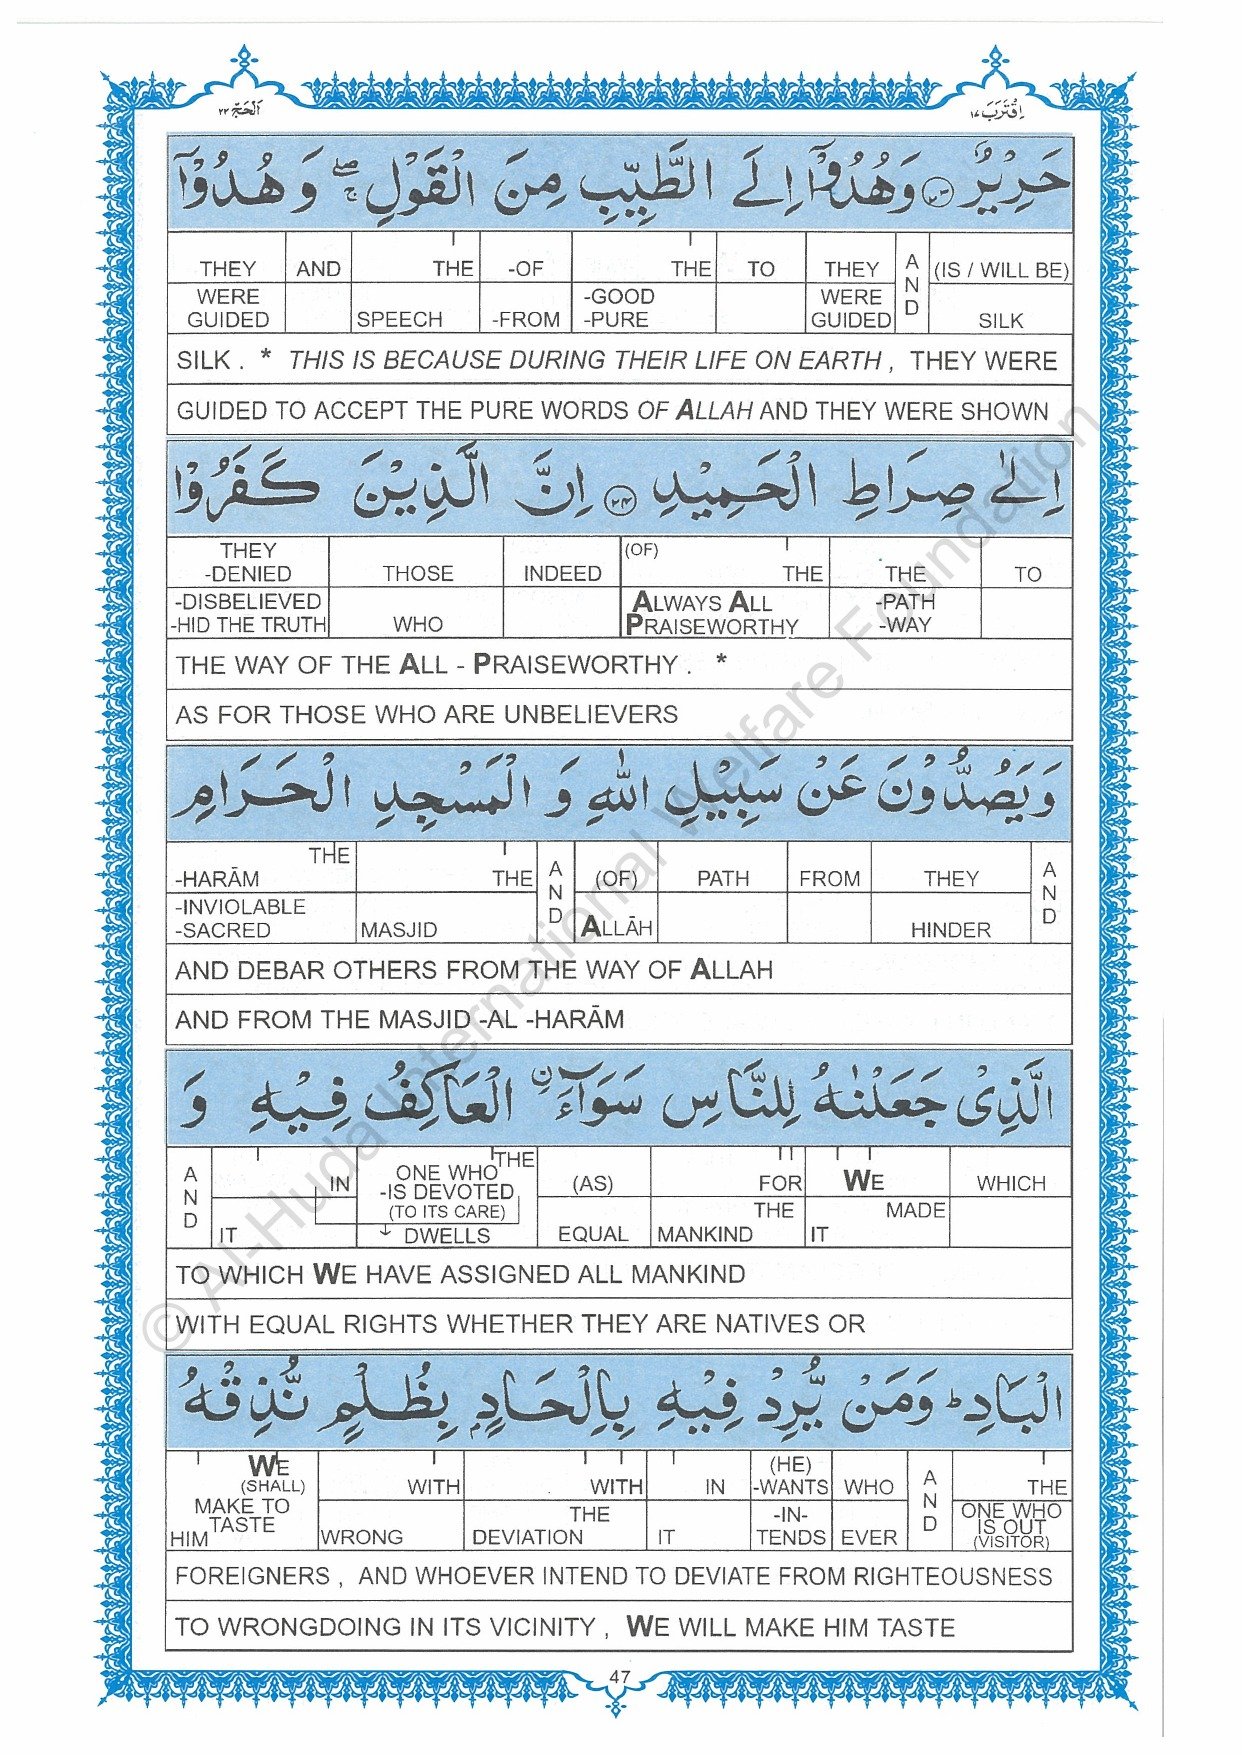 اَلْحَجّ ٢٢
اِقْتَرَبَ ١٧
حَرِيْرٌ ٢٣ وَهُدُوْٓا اِلَى الطَّيِّبِ مِنَ الْقَوْلِ ۖۚ وَهُدُوْٓا
THEY AND THE -OF THE TO THEY AND (IS / WILL BE)
WERE GUIDED SPEECH -FROM -GOOD -PURE WERE GUIDED SILK
SILK . * THIS IS BECAUSE DURING THEIR LIFE ON EARTH , THEY WERE
GUIDED TO ACCEPT THE PURE WORDS OF ALLAH AND THEY WERE SHOWN
اِلٰى صِرَاطِ الْحَمِيْدِ ٢٤ اِنَّ الَّذِيْنَ كَفَرُوْا
THEY -DENIED THOSE INDEED (OF) THE THE TO
-DISBELIEVED -HID THE TRUTH WHO ALWAYS ALL PRAISEWORTHY -PATH -WAY
THE WAY OF THE ALL - PRAISEWORTHY . *
AS FOR THOSE WHO ARE UNBELIEVERS
وَيَصُدُّوْنَ عَنْ سَبِيْلِ اللّٰهِ وَ الْمَسْجِدِ الْحَرَامِ
THE -HARĀM THE AND (OF) PATH FROM THEY AND
-INVIOLABLE -SACRED MASJID ALLĀH HINDER
AND DEBAR OTHERS FROM THE WAY OF ALLAH
AND FROM THE MASJID -AL -HARĀM
الَّذِيْ جَعَلْنٰهُ لِلنَّاسِ سَوَآءَ ۨ الْعَاكِفُ فِيْهِ وَ
AND IN THE ONE WHO -IS DEVOTED (TO ITS CARE) (AS) FOR WE WHICH
IT DWELLS EQUAL THE MANKIND MADE IT
TO WHICH WE HAVE ASSIGNED ALL MANKIND
WITH EQUAL RIGHTS WHETHER THEY ARE NATIVES OR
الْبَادِ ؕ وَمَنْ يُّرِدْ فِيْهِ بِاِلْحَادٍۭ بِظُلْمٍ نُّذِقْهُ
WE (SHALL) WITH WITH IN (HE) -WANTS WHO AND THE
MAKE TO TASTE HIM WRONG THE DEVIATION IT -IN- TENDS EVER ONE WHO IS OUT (VISITOR)
FOREIGNERS , AND WHOEVER INTEND TO DEVIATE FROM RIGHTEOUSNESS
TO WRONGDOING IN ITS VICINITY , WE WILL MAKE HIM TASTE
47
© Al-Huda International Welfare Foundation